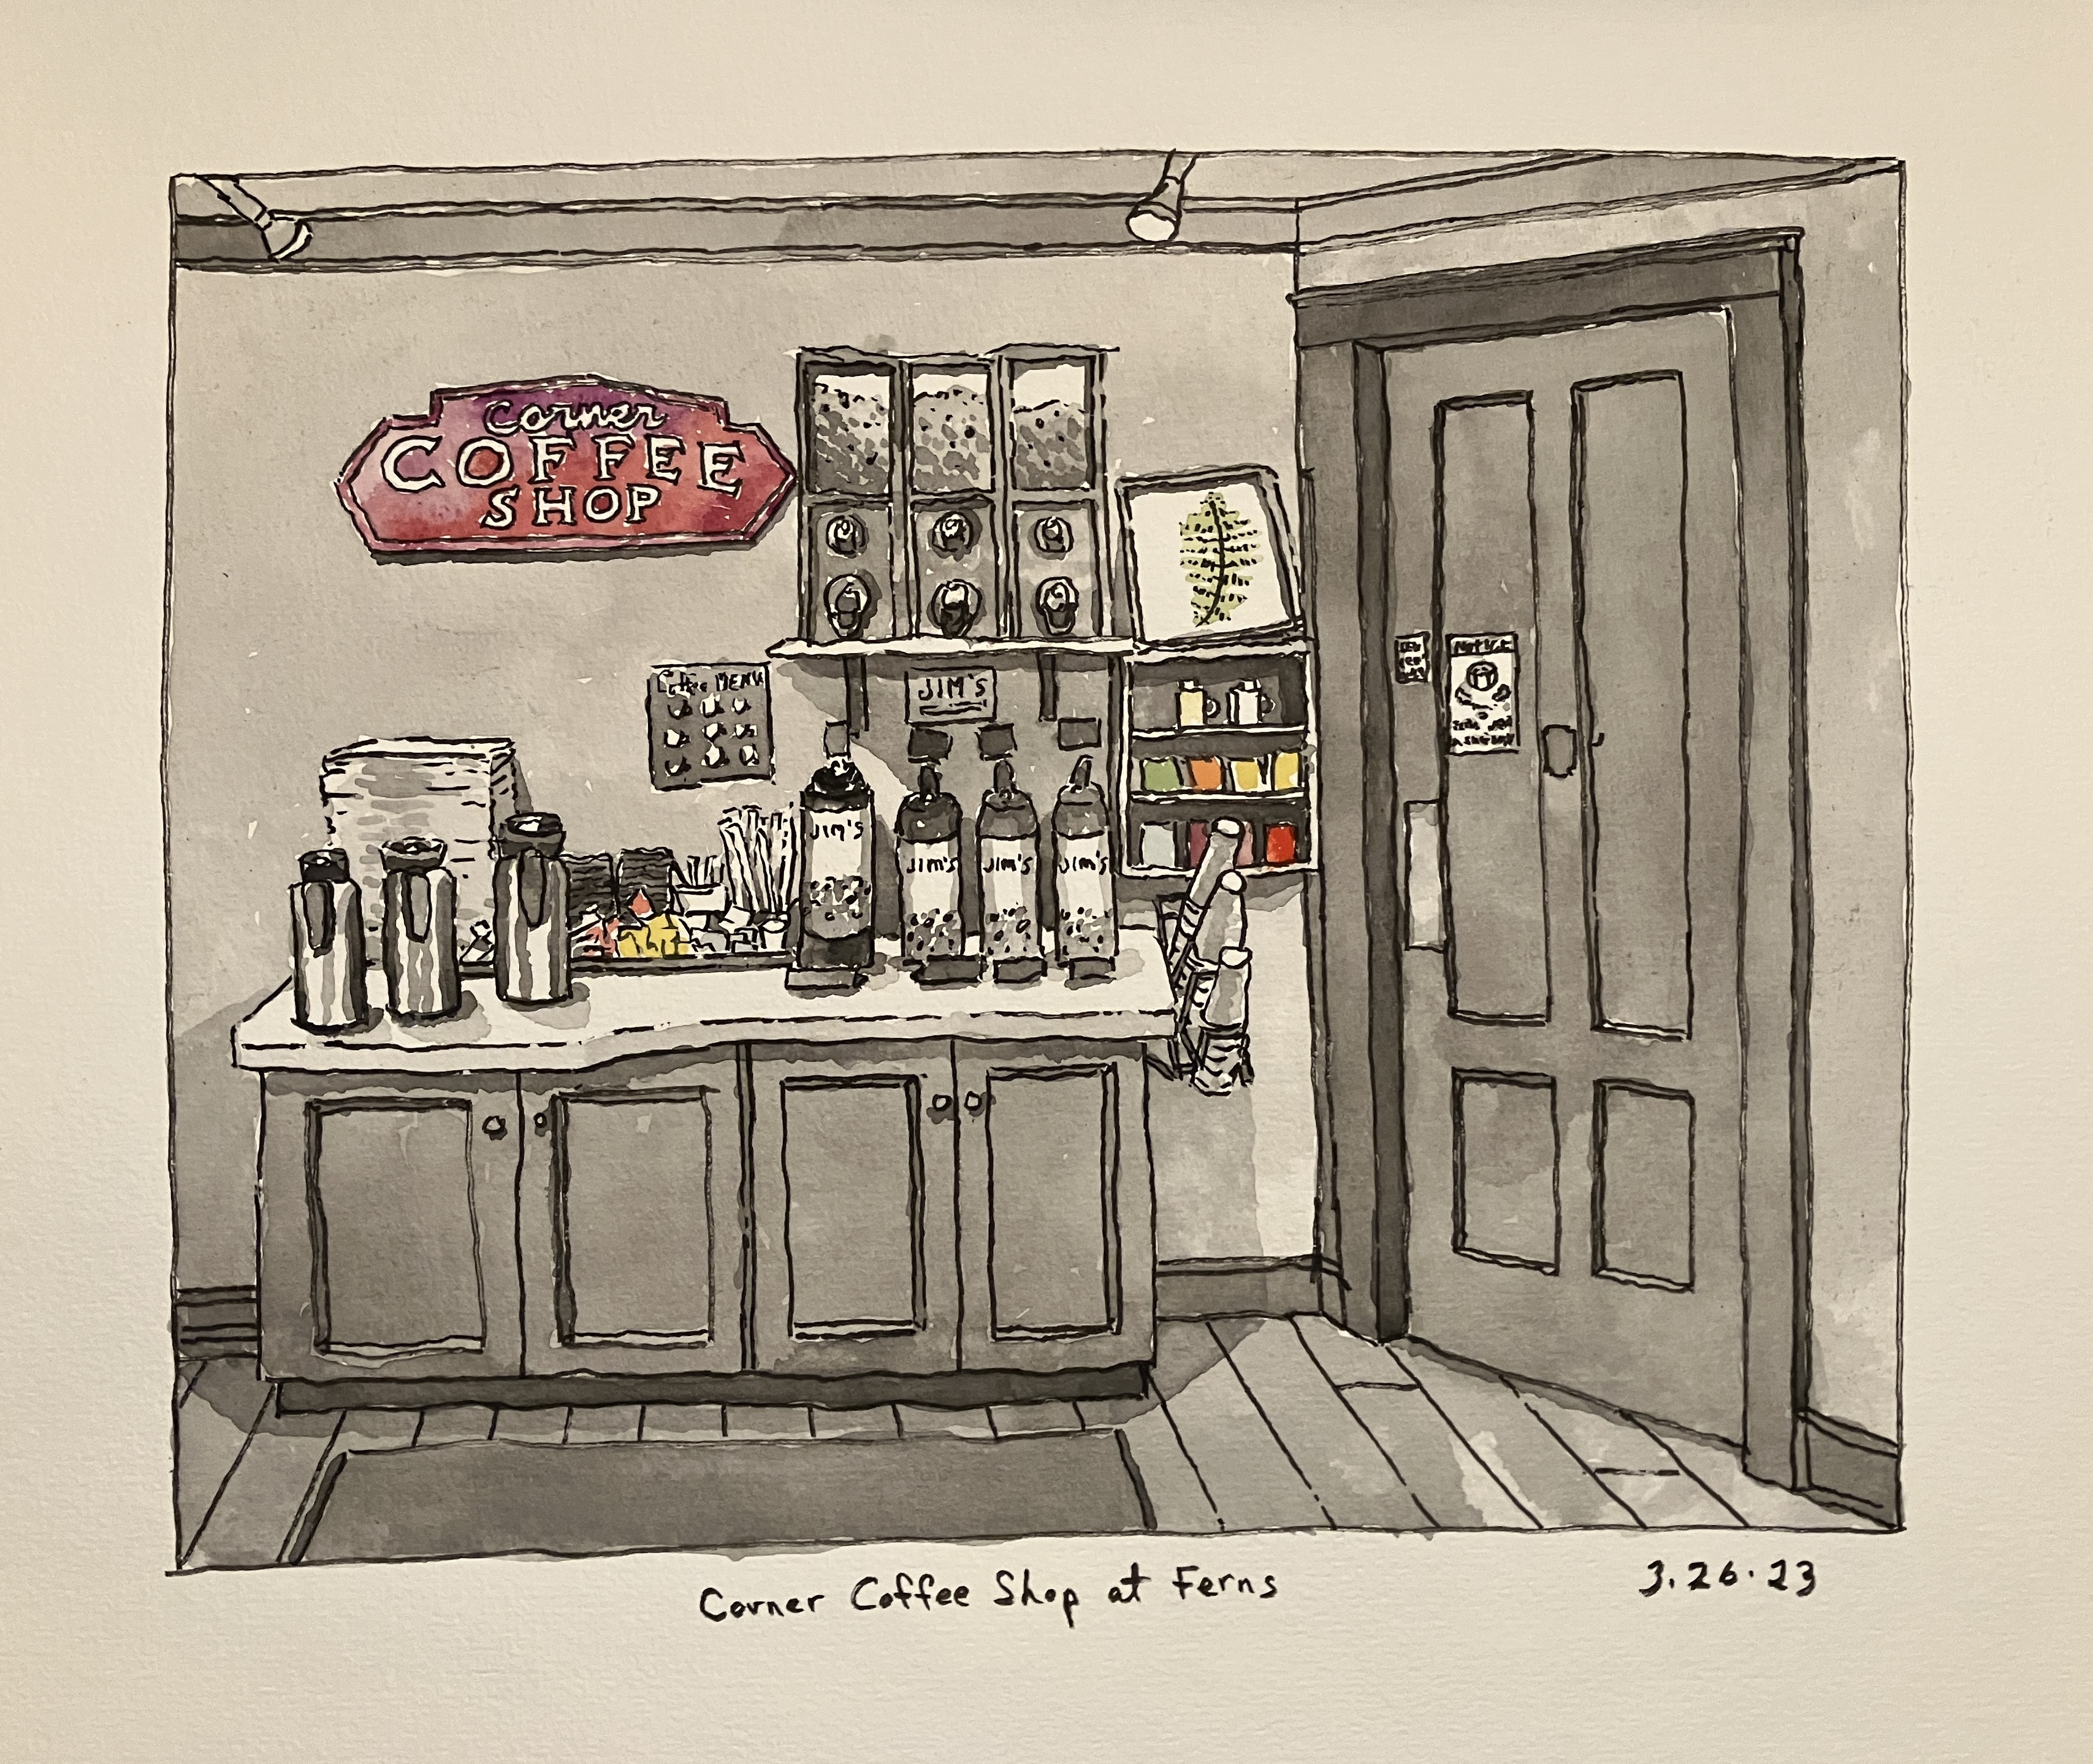 Corner
COFFEE
SHOP
Coffee MENU
JIM'S
JIM'S
Jim's
Jim's
Jim's
NOTICE
Corner Coffee Shop at Ferns
3.26.23